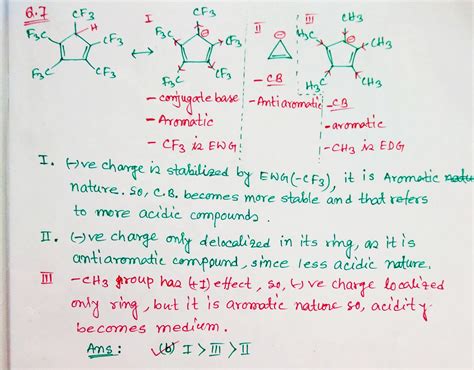 Q.7
CF3 I CF3 II III CH3
F3C H CF3 F3C ⊖ CF3 ⊖ H3C ⊖ CH3
F3C CF3 F3C CF3 H3C CH3
↔
- conjugate base
- Aromatic
- CF3 is EWG
- CB
- Antiaromatic
- CB
- aromatic
- CH3 is EDG
I. (-)ve charge is stabilized by EWG(-CF3), it is Aromatic
nature. so, C.B. becomes more stable and that refers
to more acidic compounds.
II. (-)ve charge only delocalized in its ring, as it is
antiaromatic compound, since less acidic nature.
III -CH3 group has (+I) effect, so, (-)ve charge localized
only ring, but it is aromatic nature so, acidity
becomes medium.
Ans : (b) I > III > II